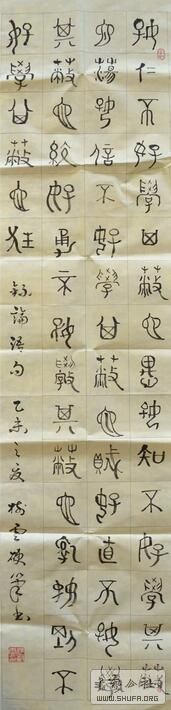 好仁不好學其蔽也愚好知不好學其蔽
也蕩好信不好學其蔽也賊好直不好學
其蔽也絞好勇不好學其蔽也亂好剛不
好學其蔽也狂
錄論語句 乙未之夏
WWW.SHUFA.ORG